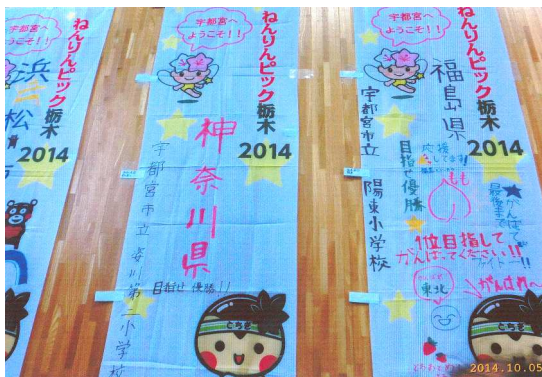 浜
松
ねんりんピック栃木
2014
宇都宮へ
ようこそ!!
ねんりんピック栃木
2014
神奈川県
宇都宮市立 姿川第二小学校
目指せ優勝!!
とちぎ
宇都宮へ
ようこそ!!
ねんりんピック栃木
2014
福島県
宇都宮市立 陽東小学校
目指せ優勝
応援
してます!!
もも
がんばって
最後まで
1位目指して
がんばってください!!
東北
がんばれ〜
とちぎ
2014.10.05